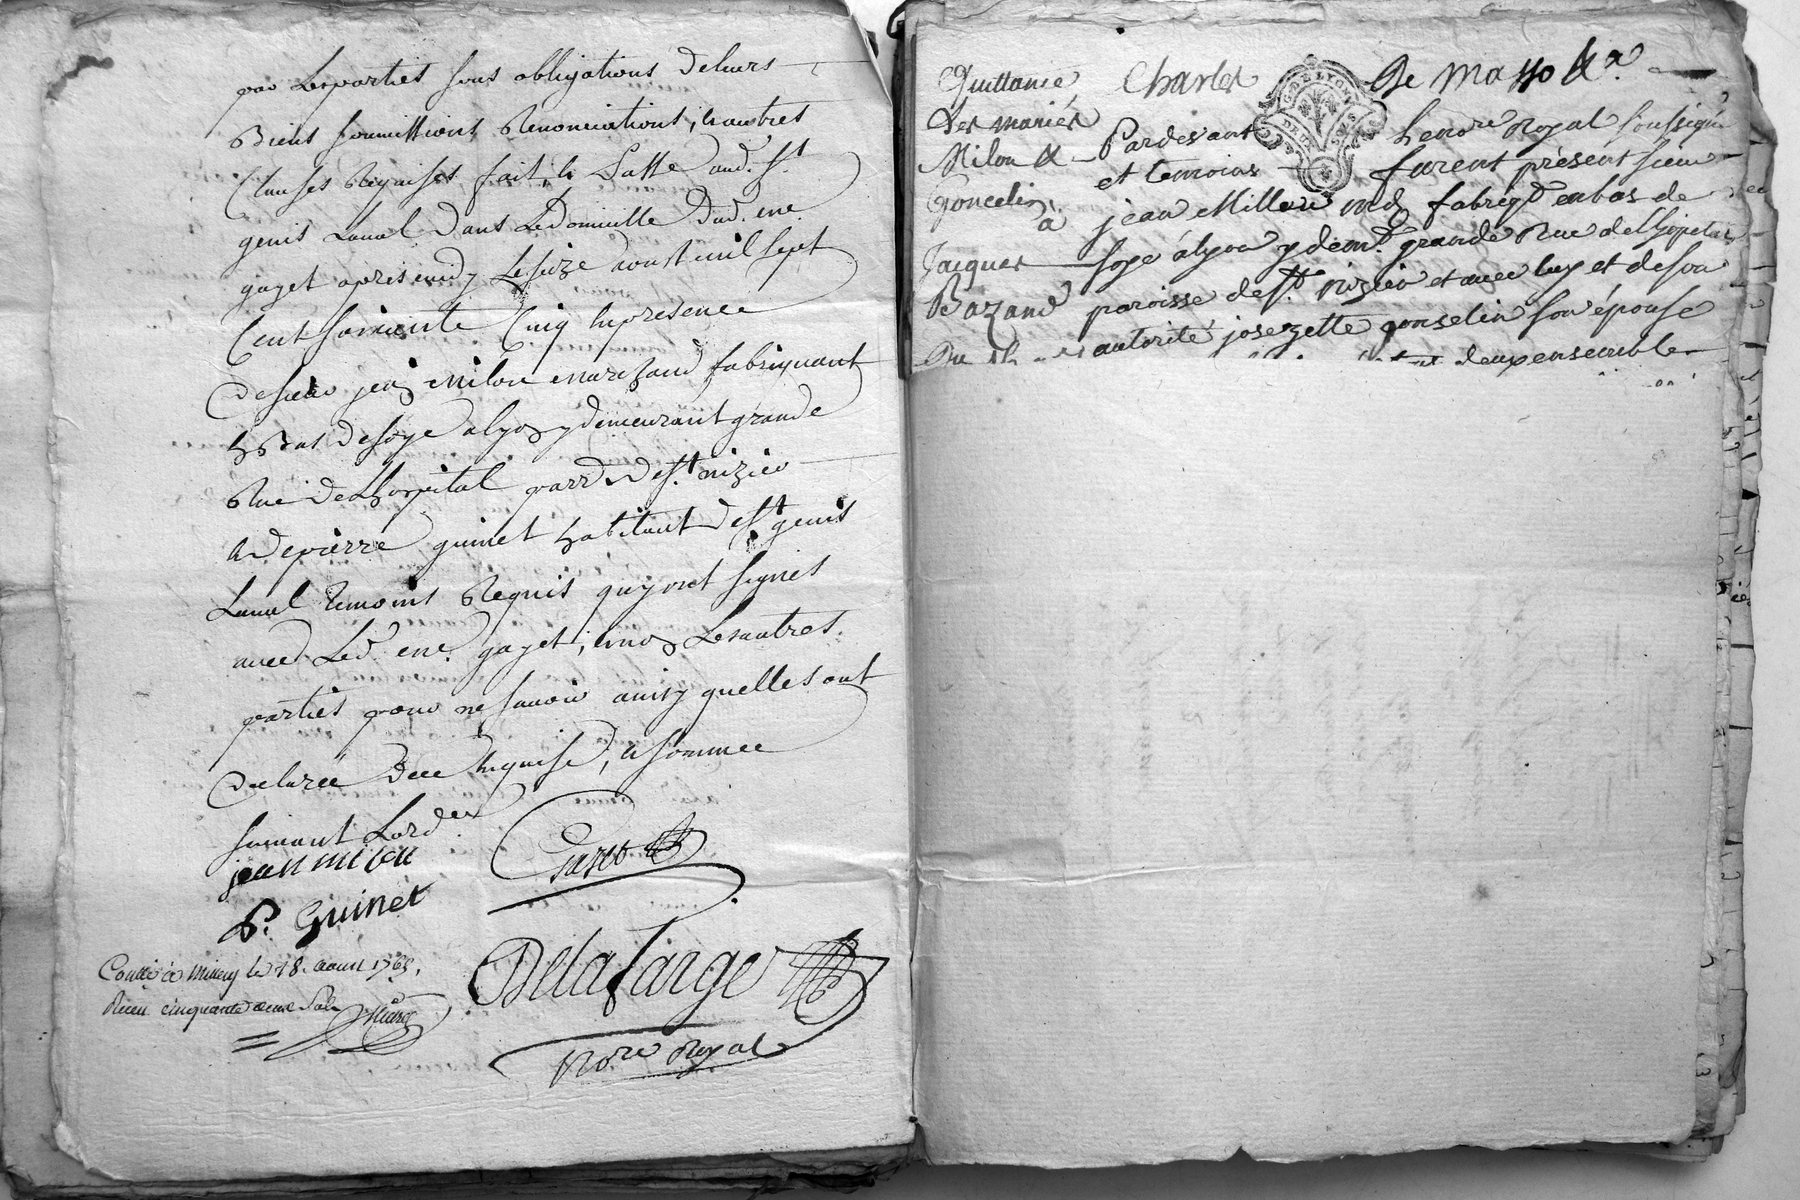 par Les parties sous obligations de leurs
Biens soumissions Renonciations, & autres
Clauses Requises fait & Passé aud. St
genis Laval Dans Le domicille Dud. me
gayet apres midy Le seize aoust mil sept
Cent soixante Cinq En presence
de sieur jean Milon marchand fabriquant
En Bas de soye a lyon y demeurant grande
Rue de Lhopital parr. de St nizier
& de pierre guinet habitant de St genis
Laval temoins Requis qui ont signés
avec Led. me gayet, & non Les autres
parties pour ne savoir ainsy quelles ont
declaree de ce Enquise, & sommee
suivant Lord.
jean milon
Gayet
P. Guinet
Delafarge
Contlé à Millery le 18. aoust 1765.
Receu cinquante deux sols
Nore Royal
Quittance
Des mariés
Milon &
Goncelin
à
Jacques
Bazand
Du
Charles De Masso &a.
G. DE LYON
DEUX SOLS
Pardevant Le nore Royal soussigné
et temoins furent présent sieur
jean Millon md fabriqt en bas de
soye à lyon y demt grande Rue de l'hopital
paroisse de St nizier et avec luy et de son
autorité josephette gonselin son épouse
deux ensemble